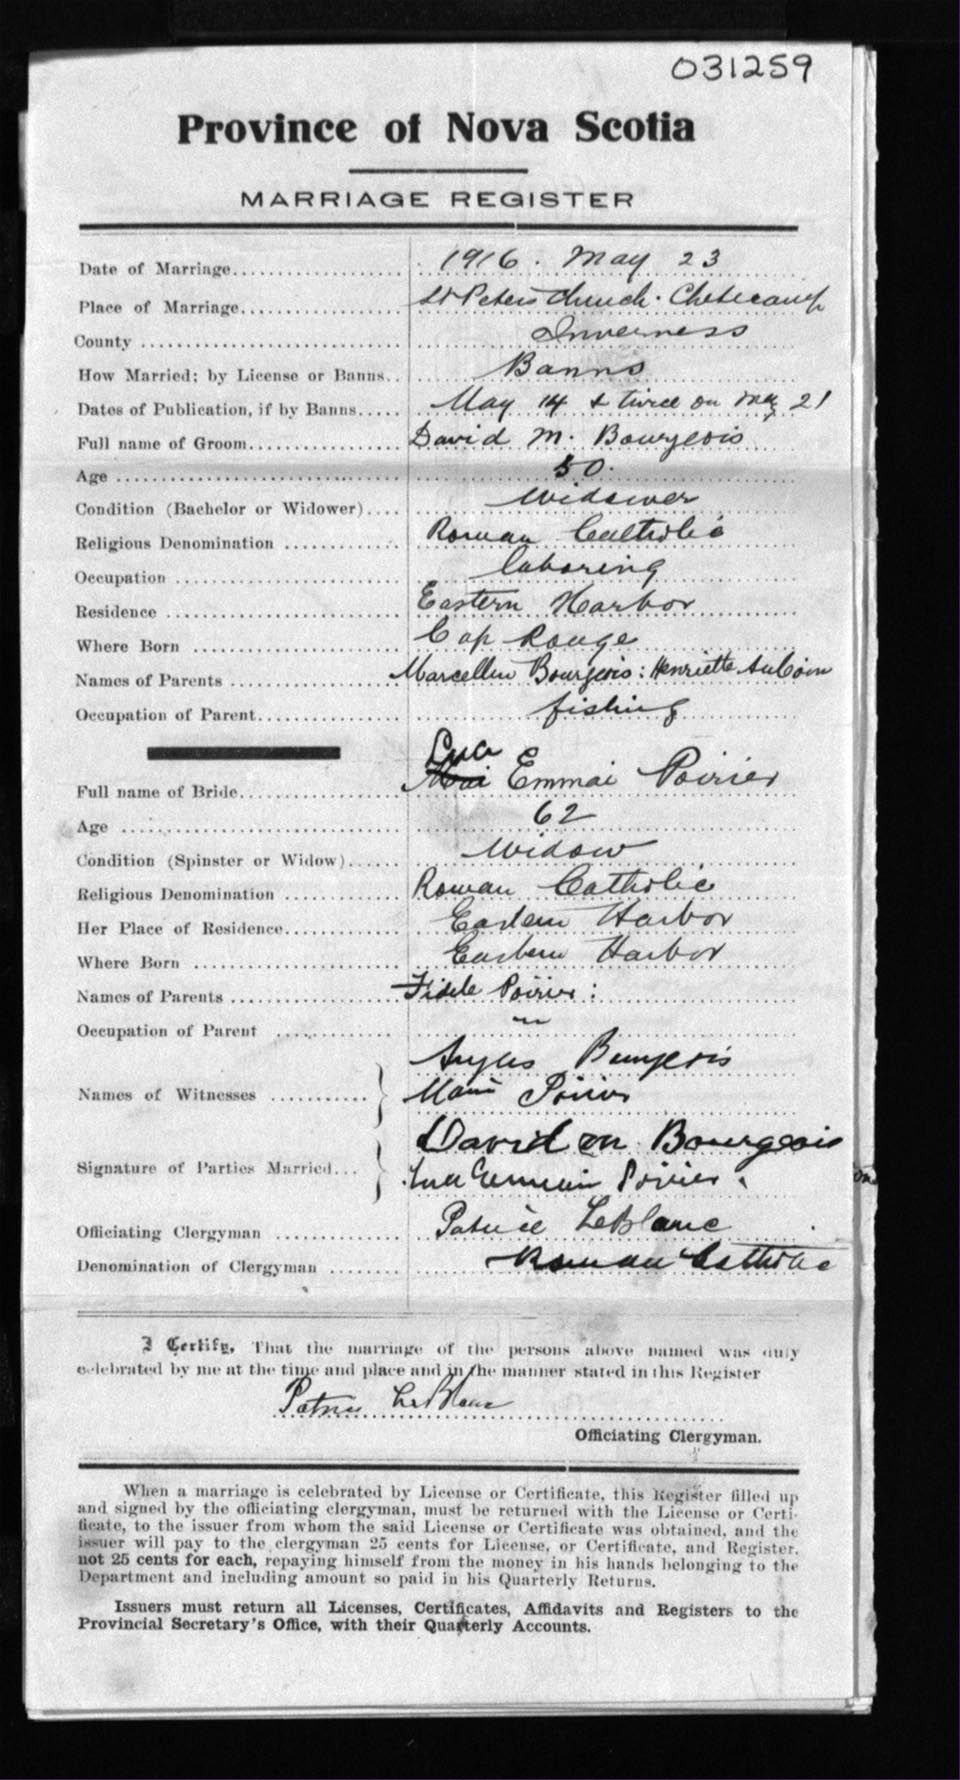 031259
Province of Nova Scotia
MARRIAGE REGISTER
Date of Marriage.................... 1916. May 23
Place of Marriage................... St Peters Church. Cheticamp
County .............................. Inverness
How Married; by License or Banns.. Banns
Dates of Publication, if by Banns..... May 14 & twice on May 21
Full name of Groom.................. David M. Bourgeois
Age .................................. 50.
Condition (Bachelor or Widower).... Widower
Religious Denomination .............. Roman Catholic
Occupation ........................... laboring
Residence ............................ Eastern Harbor
Where Born ......................... Cap Rouge
Names of Parents .................... Marcellin Bourgeois: Henriette AuCoin
Occupation of Parent................. fishing
Luce
Full name of Bride................... Emmai Poirier
Age .................................. 62
Condition (Spinster or Widow)...... Widow
Religious Denomination .............. Roman Catholic
Her Place of Residence.............. Eastern Harbor
Where Born ......................... Eastern Harbor
Names of Parents .................... Fidele Poirier:
Occupation of Parent ............... "
Angus Bourgeois
Names of Witnesses ........... Poirier
David M. Bourgeois
Signature of Parties Married... Poirier.
Officiating Clergyman ............... Patrice LeBlanc
Denomination of Clergyman ........ Roman Catholic
I Certify, That the marriage of the persons above named was duly
celebrated by me at the time and place and in the manner stated in this Register
Patrice LeBlanc
Officiating Clergyman.
When a marriage is celebrated by License or Certificate, this Register filled up
and signed by the officiating clergyman, must be returned with the License or Certi-
ficate, to the issuer from whom the said License or Certificate was obtained, and the
issuer will pay to the clergyman 25 cents for License, or Certificate, and Register,
not 25 cents for each, repaying himself from the money in his hands belonging to the
Department and including amount so paid in his Quarterly Returns.
Issuers must return all Licenses, Certificates, Affidavits and Registers to the
Provincial Secretary's Office, with their Quarterly Accounts.